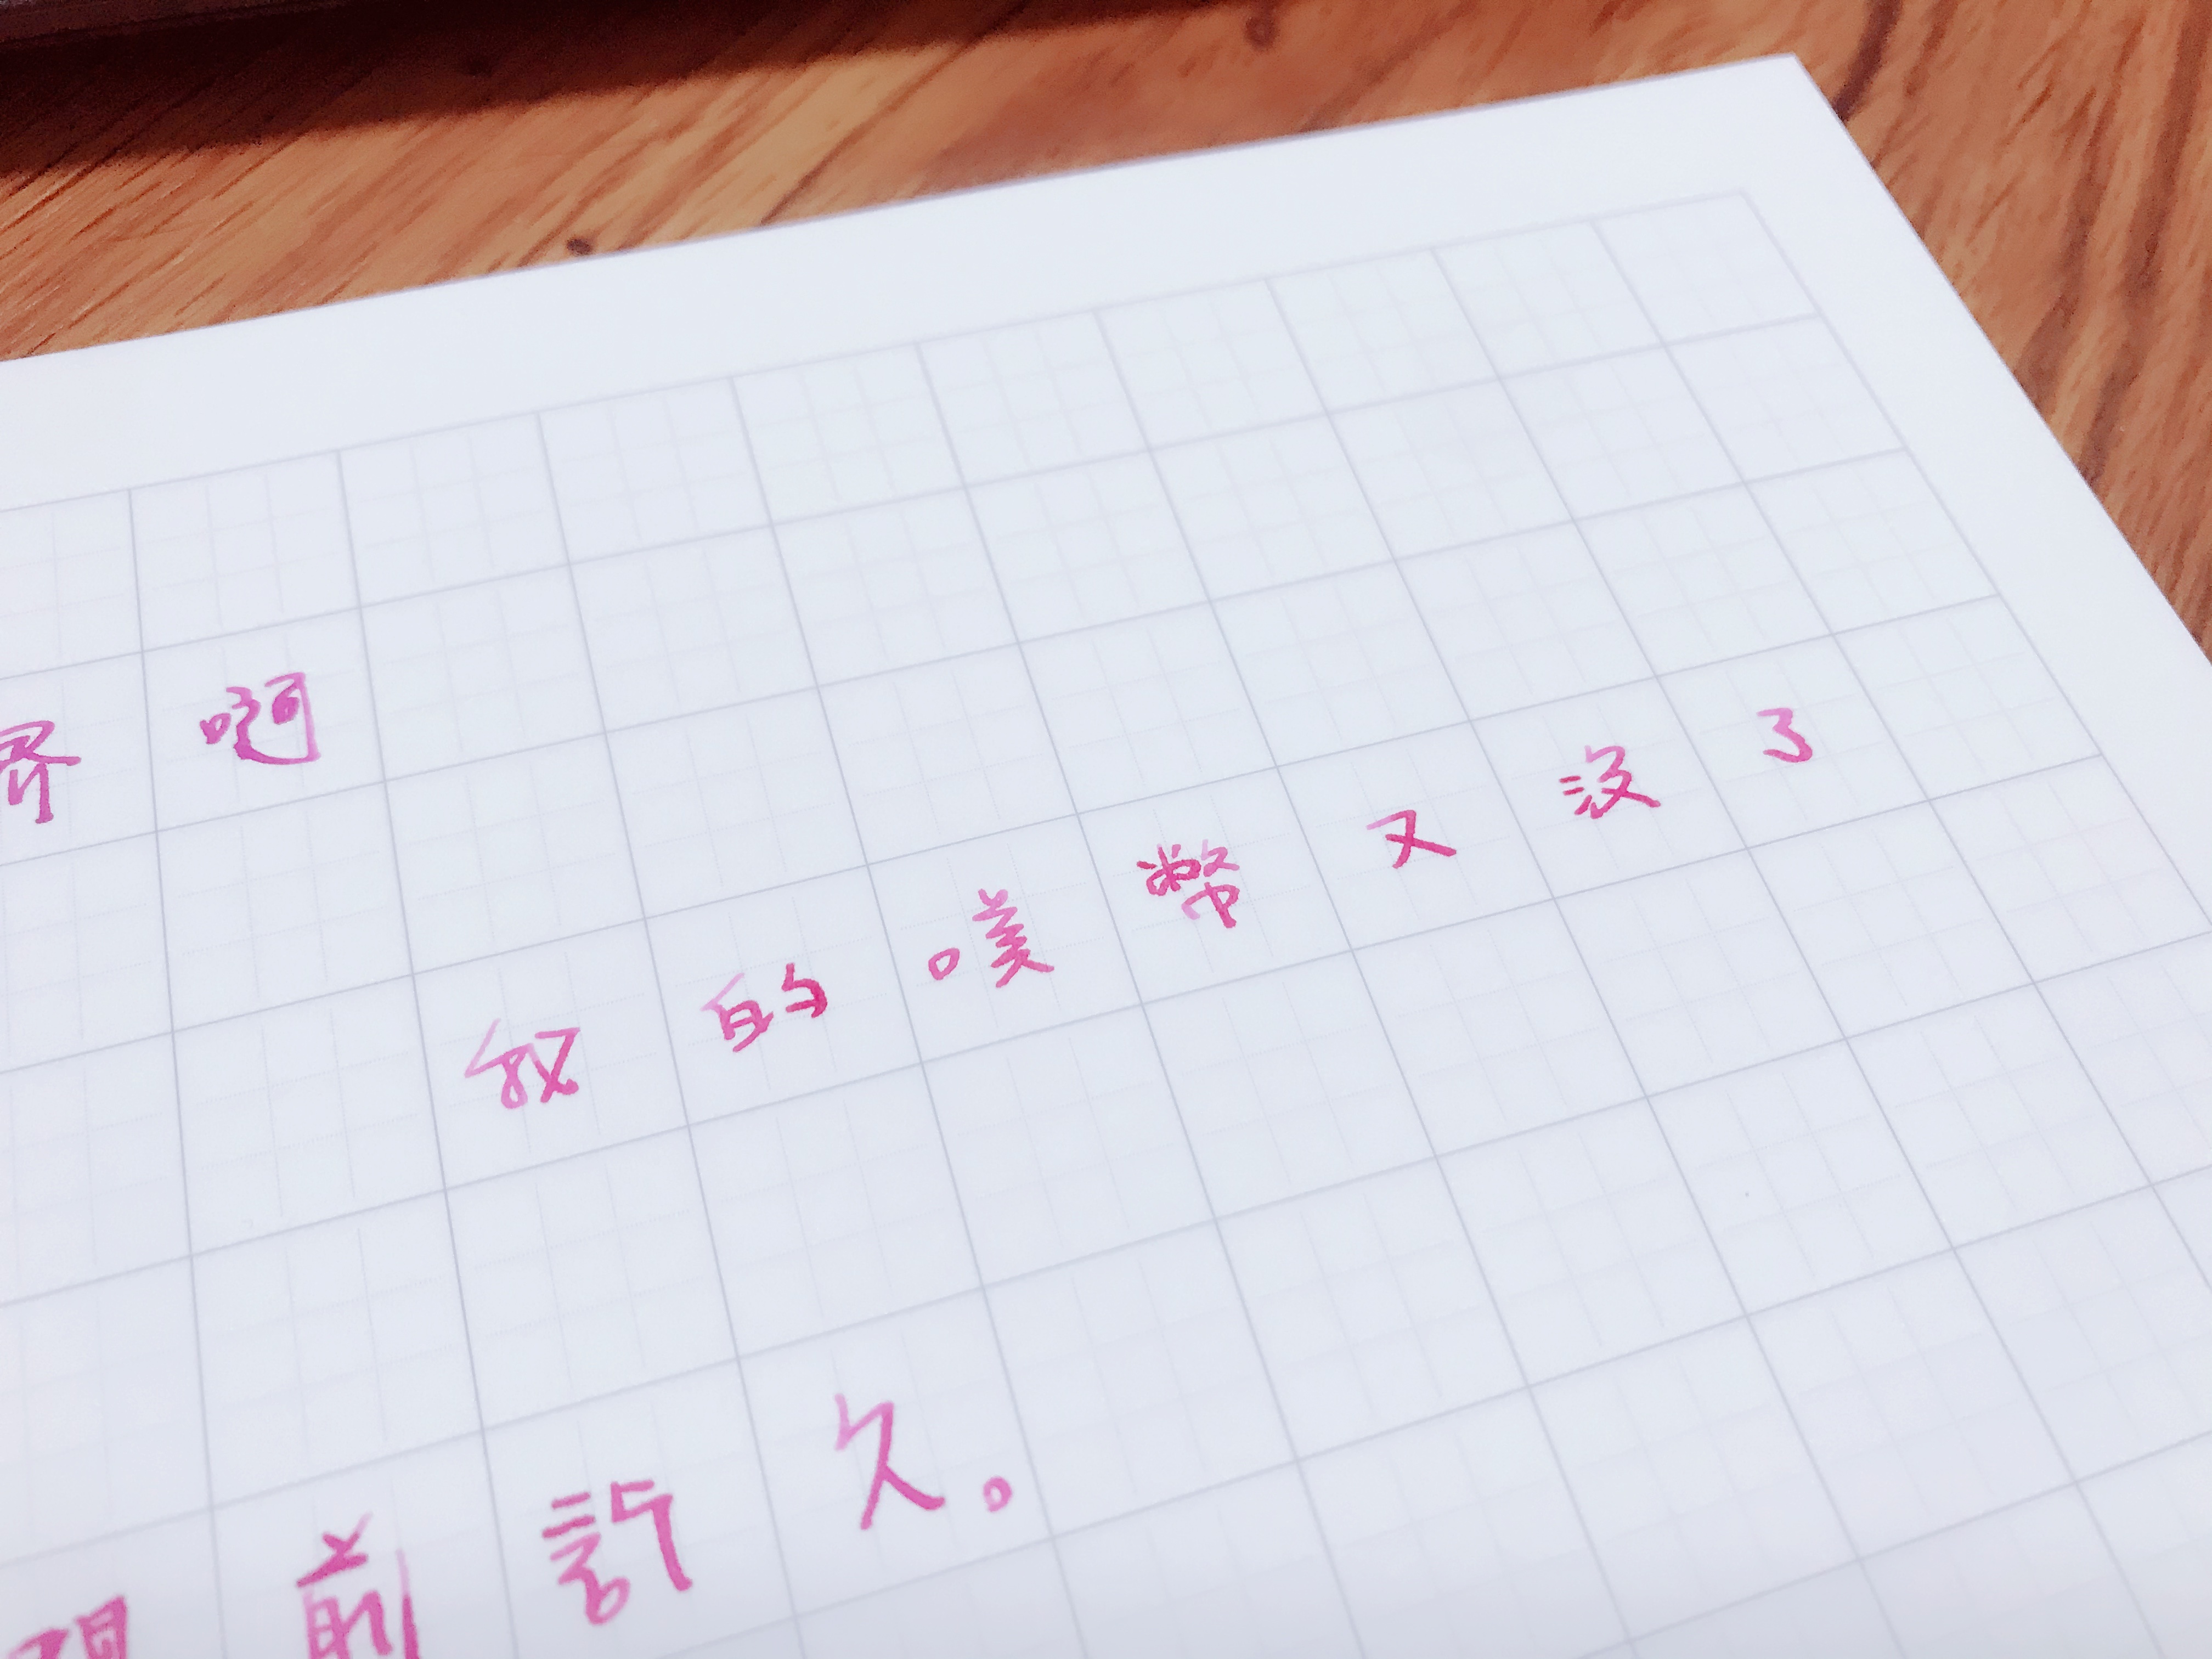 界啊
我的噗幣又沒了
前許久。